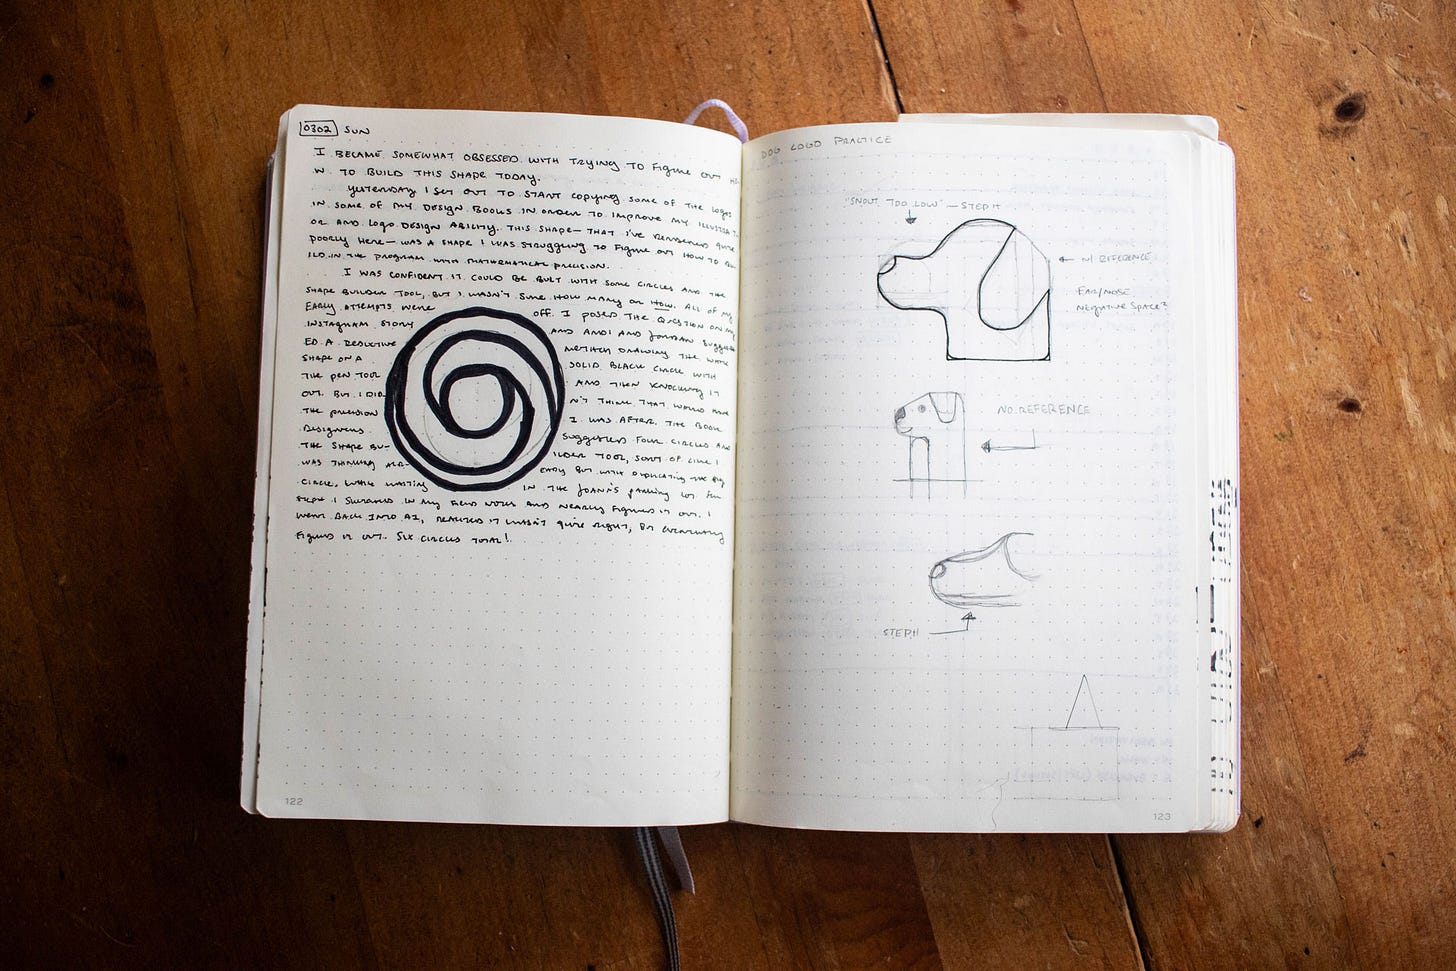 0302 SUN
I BECAME SOMEWHAT OBSESSED WITH TRYING TO FIGURE OUT HO
W TO BUILD THIS SHAPE TODAY.
YESTERDAY I SET OUT TO START COPYING SOME OF THE LOGOS
IN SOME OF MY DESIGN BOOKS IN ORDER TO IMPROVE MY ILLUSTRATI
ON AND LOGO DESIGN ABILITY. THIS SHAPE—THAT I'VE RENDERED QUITE
POORLY HERE—WAS A SHAPE I WAS STRUGGLING TO FIGURE OUT HOW TO BU
ILD IN THE PROGRAM WITH MATHEMATICAL PRECISION.
I WAS CONFIDENT IT COULD BE BUILT WITH SOME CIRCLES AND THE
SHAPE BUILDER TOOL, BUT I WASN'T SURE HOW MANY OR HOW. ALL OF MY
EARLY ATTEMPTS WERE OFF. I POSED THE QUESTION ON MY
INSTAGRAM STORY AND ANDI AND JORDAN SUGGEST
ED A REDUCTIVE METHOD DRAWING THE WHOLE
SHAPE ON A SOLID BLACK CIRCLE WITH
THE PEN TOOL AND THEN KNOCKING IT
OUT. BUT I DID N'T THINK THAT WOULD HAVE
THE PRECISION I WAS AFTER. THE BOOK
DESIGNERS SUGGESTED FOUR CIRCLES AND
THE SHAPE BU- ILDER TOOL, SORT OF LIKE I
WAS THINKING ALR- EADY BUT WITH DUPLICATING THE BIG
CIRCLE. WHILE WAITING IN THE JOANN'S PARKING LOT FOR
STEPH I SKETCHED IN MY FIELD NOTES AND NEARLY FIGURED IT OUT. I
WENT BACK INTO AI, REALIZED IT WASN'T QUITE RIGHT, BUT EVENTUALLY
FIGURED IT OUT. SIX CIRCLES TOTAL!
122
DOG LOGO PRACTICE
"SNOUT TOO LOW" — STEPH
W/ REFERENCE
EAR/NOSE
NEGATIVE SPACE?
NO REFERENCE
STEPH
123